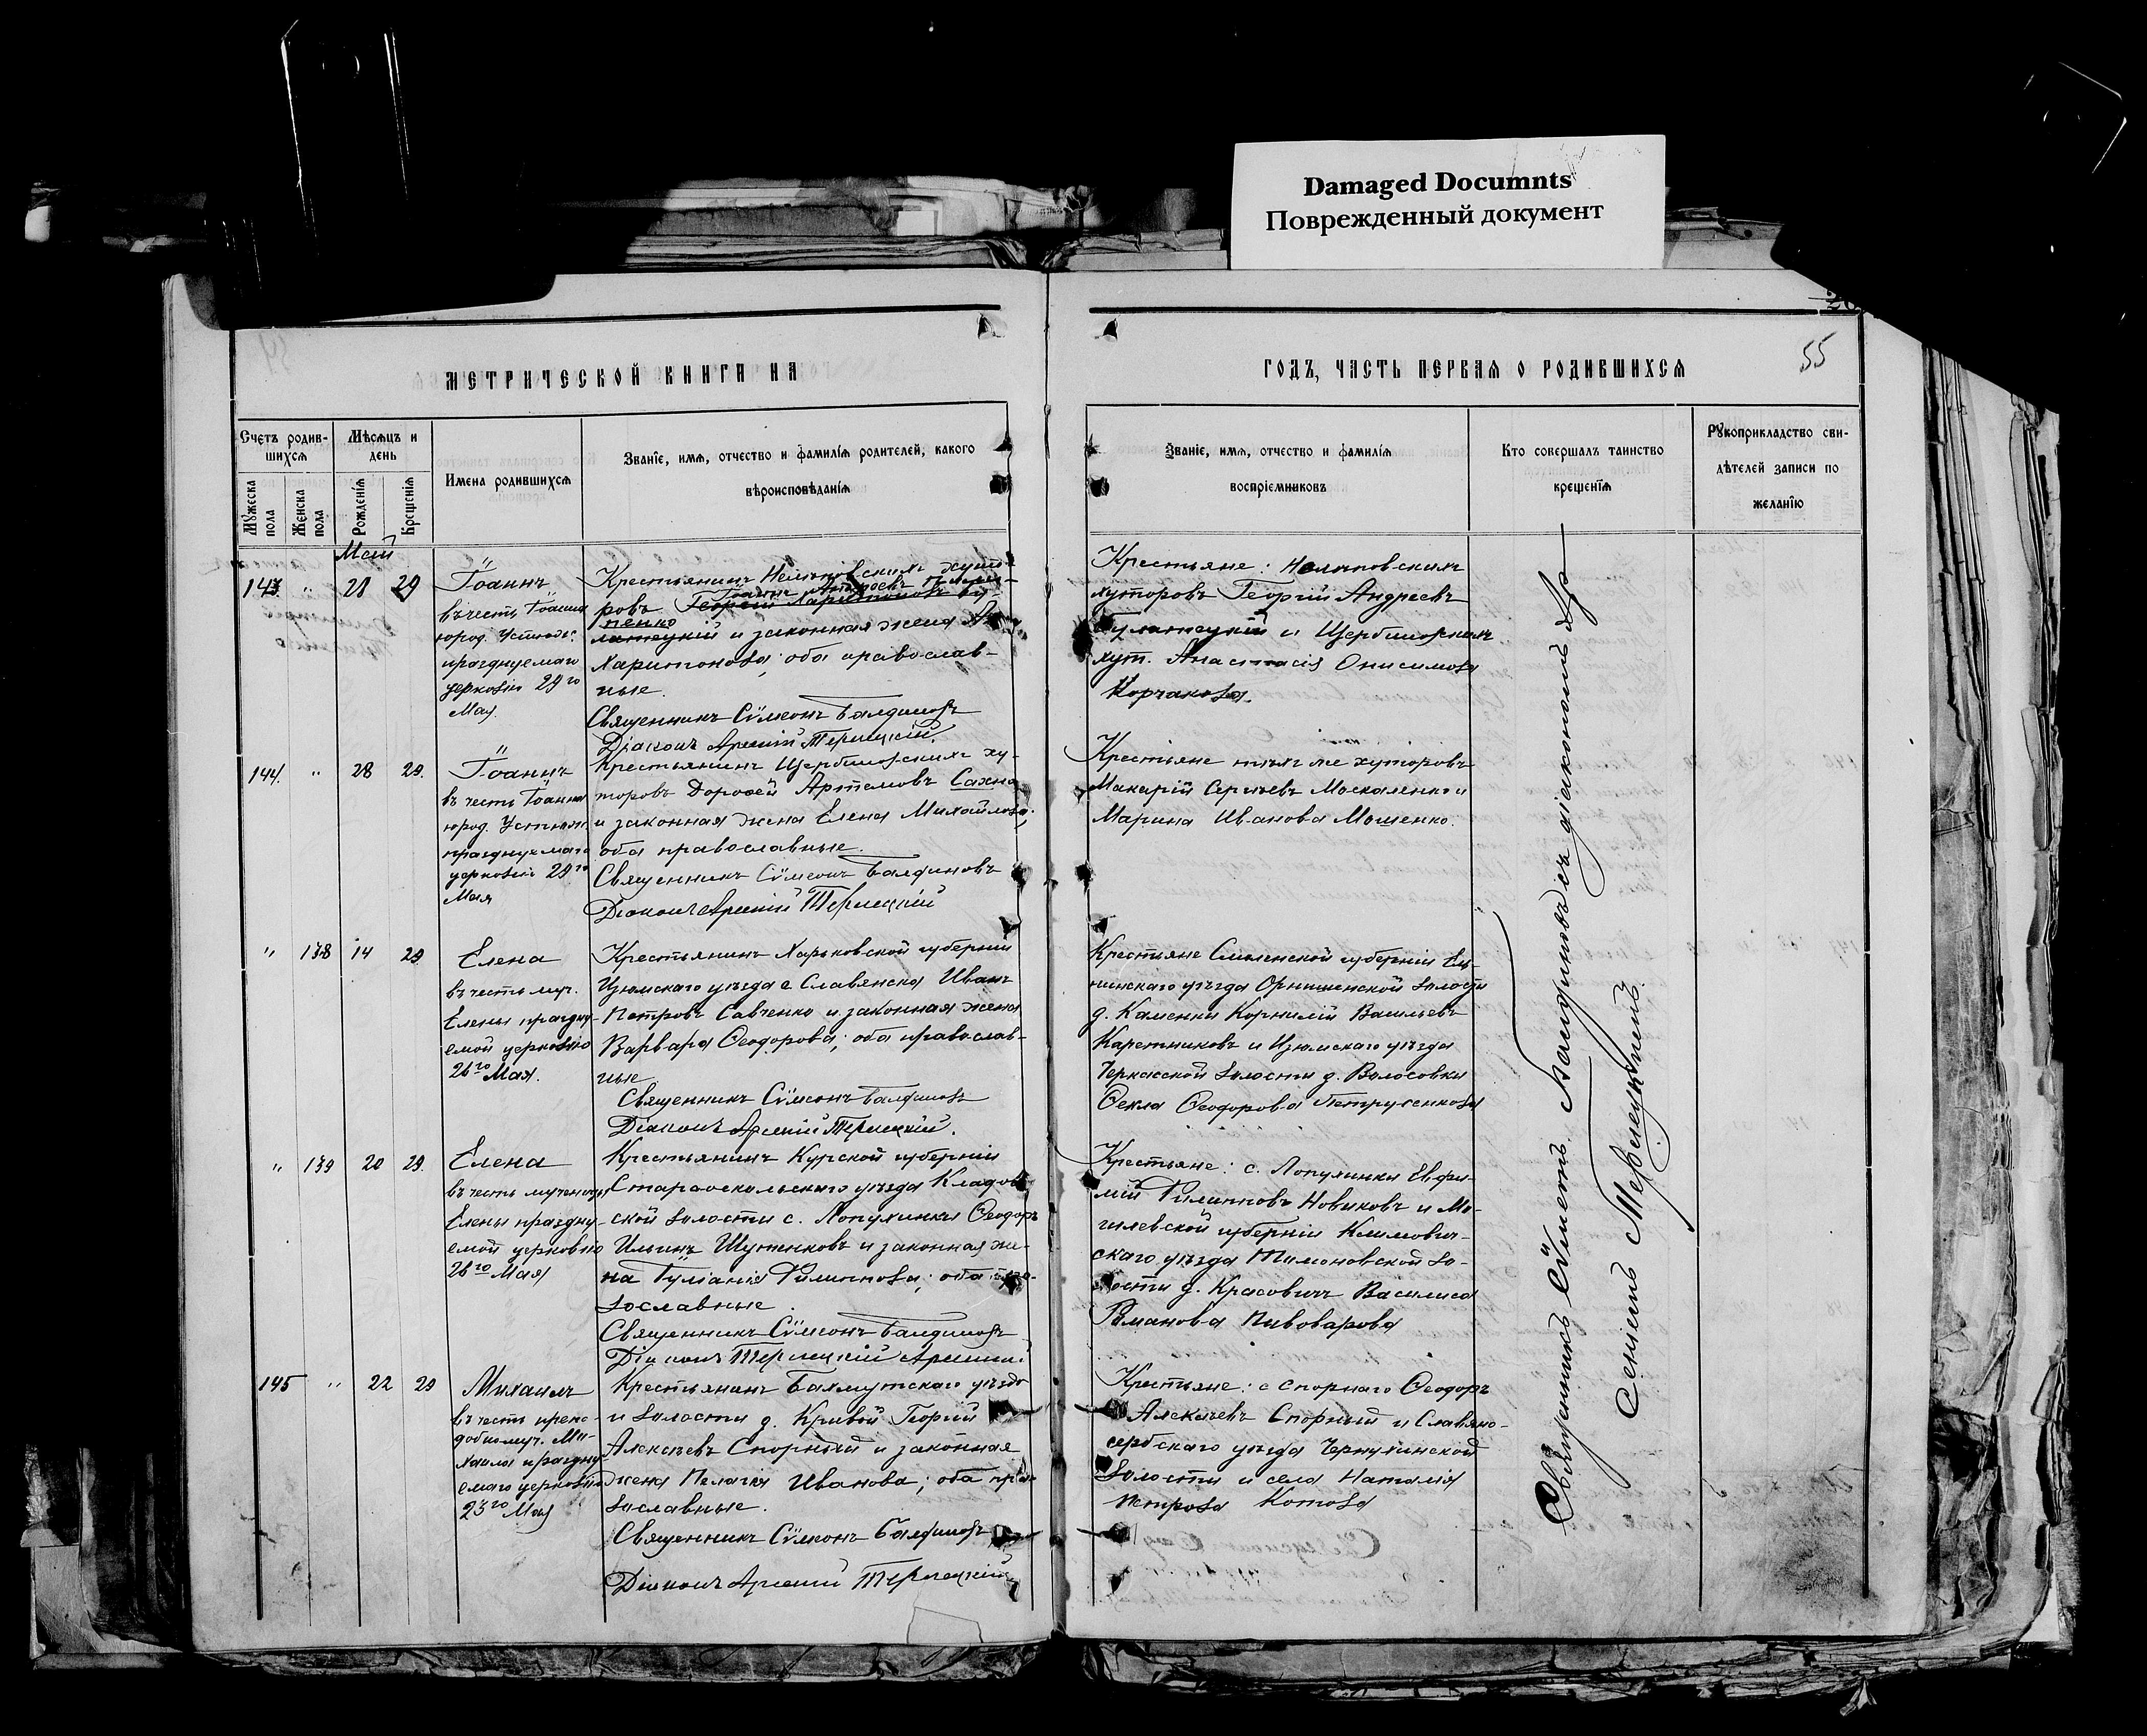 Damaged Documnts
Поврежденный документ
55
МЕТРИЧЕСКОЙ КНИГИ НА
ГОДЪ, ЧАСТЬ ПЕРВАЯ О РОДИВШИХСЯ
Счетъ родив-
шихся
Мѣсяцъ и
день
Имена родившихся
Званіе, имя, отчество и фамилія родителей, какого
вѣроисповѣданія
Мужеска
пола
Женска
пола
Рожденія
Крещенія
Званіе, имя, отчество и фамилія
воспріемниковъ
Кто совершалъ таинство
крещенія
Рукоприкладство сви-
дѣтелей записи по
желанію
Май
143 " 28 29
Іоаннъ
въ честь Іоанна
юрод. Устюж.
празднуемаго
церковію 29го
Мая.
Крестьянинъ хуто-
ровъ Георгій Харитоновъ Бу-
пенко
латецкій и законная жена
Харитонова; оба православ-
ные.
Священникъ Сѵмеонъ Балдиновъ
Діаконъ Арсеній Терлецкій.
Крестьяне:
хуторовъ Георгій Андреевъ
Булатецкій и Щербиновскихъ
хут. Анастасія Онисимова
Корчакова.
144. " 28 29.
Іоаннъ
въ честь Іоанна
юрод. Устюж.
празднуемаго
церковію 29го
Мая
Крестьянинъ Щербиновскихъ ху-
торовъ Дороѳей Артемовъ Сахно
и законная жена Елена Михайлова;
оба православные.
Священникъ Сѵмеонъ Балдиновъ
Діаконъ Арсеній Терлецкій
Крестьяне тѣхъ же хуторовъ
Макарій Сергѣевъ Москаленко и
Марина Иванова Мошенко.
" 138 14 29
Елена
въ честь муч.
Елены праздну-
емой церковію
26го Мая.
Крестьянинъ Харьковской губерніи
Изюмскаго уѣзда с. Славянска Иванъ
Петровъ Савченко и законная жена
Варвара Ѳеодорова; оба православ-
ные
Священникъ Сѵмеонъ Балдиновъ
Діаконъ Арсеній Терлецкій.
Крестьяне Смоленской губерніи Ель-
нинскаго уѣзда волости
д. Каменки Корнилій Васильевъ
Каретниковъ и Изюмскаго уѣзда
Черкасской волости д. Волосовки
Ѳекла Ѳеодорова
" 139 20 29.
Елена
въ честь мученицы
Елены праздну-
емой церковію
26го Мая
Крестьянинъ Курской губерніи
Старооскольскаго уѣзда Кладов-
ской волости с. Лопухинки Ѳеодоръ
Ильинъ Шутенковъ и законная же-
на Іуліанія Филиппова; оба пра-
вославные.
Священникъ Сѵмеонъ Балдиновъ
Діаконъ Терлецкій Арсеній
Крестьяне: с. Лопухинки Евфи-
мій Филипповъ Новиковъ и Мо-
гилевской губерніи Климович-
скаго уѣзда Тимоновской во-
лости д. Красовичъ Василиса
Романова Пивоварова
145 " 22 29
Михаилъ
въ честь препо-
добномуч. Ми-
хаила праздну-
емаго церковію
23го Мая
Крестьянинъ Бахмутскаго уѣзда
и волости д. Кривой Георгій
Алексѣевъ Спорный и законная
жена Пелагія Иванова; оба пра-
вославные.
Священникъ Сѵмеонъ Балдиновъ
Діаконъ Арсеній Терлецкій
Крестьяне: с Спорнаго Ѳеодоръ
Алексѣевъ Спорный и Славяно-
сербскаго уѣзда Чернухинской
волости и села Наталія
Петрова Котова
Священникъ Сѵмеонъ Балдиновъ съ діакономъ Ар-
сеніемъ Терлецкимъ.